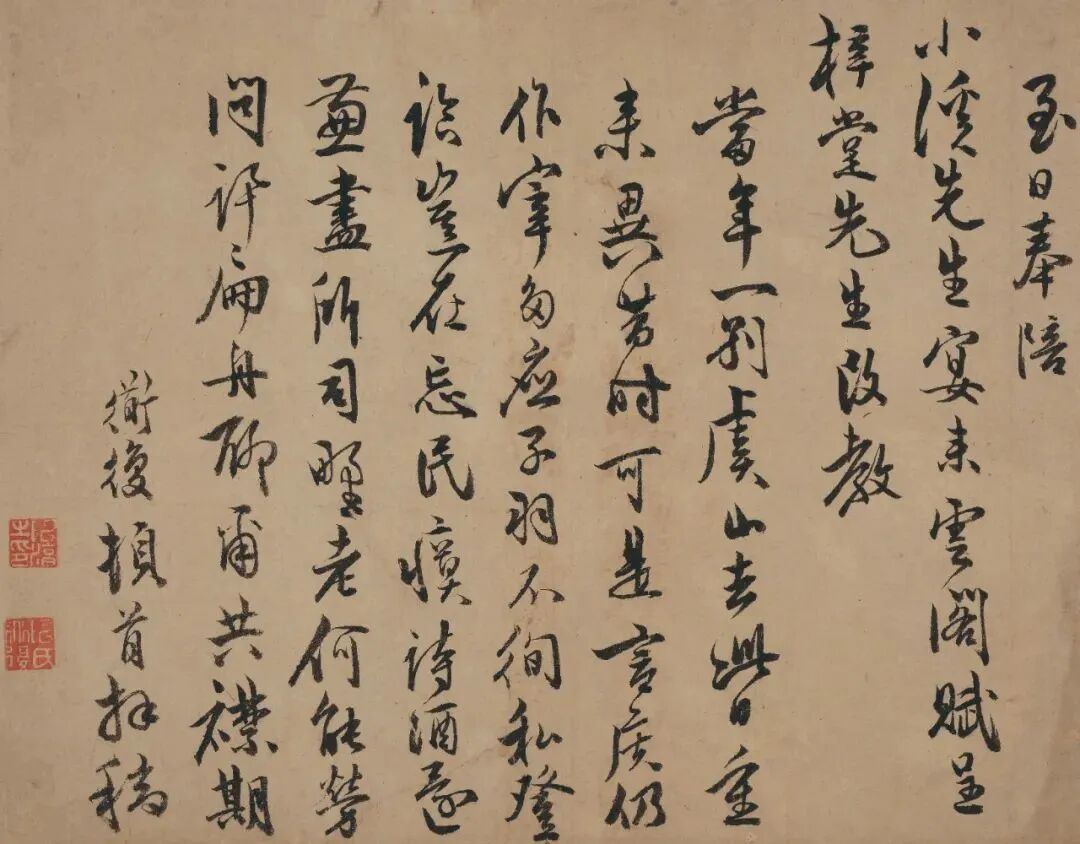 至日奉陪
小溪先生宴来雲閣賦呈
梓堂先生改教
當年一別虞山去此日重
来異昔時可是言侯仍
作宰多應子羽不徇私登
臨豈在忘民瘼詩酒還
兼盡所司野老何能勞
問訊扁舟聊爾共襟期
衡復頓首拜稿